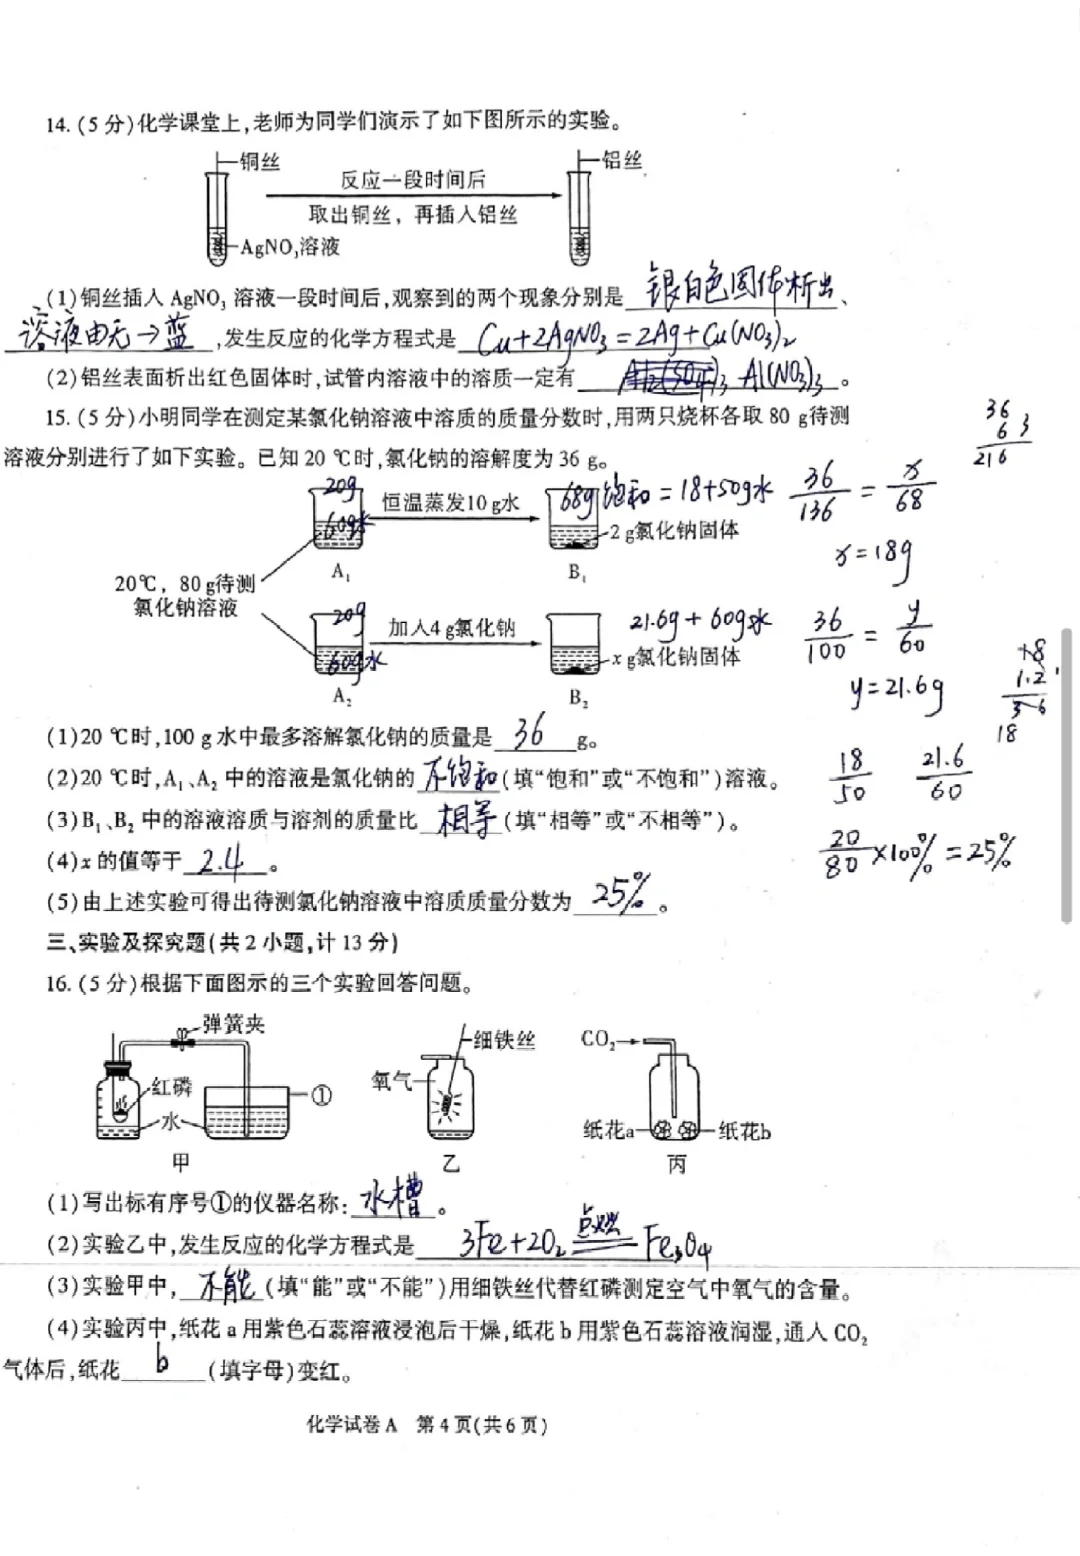 14. (5 分)化学课堂上,老师为同学们演示了如下图所示的实验。
铜丝
反应一段时间后
取出铜丝，再插入铝丝
铝丝
AgNO₃溶液
(1)铜丝插入 AgNO₃ 溶液一段时间后,观察到的两个现象分别是 银白色固体析出、
溶液由无→蓝 ,发生反应的化学方程式是 Cu+2AgNO₃=2Ag+Cu(NO₃)₂
(2)铝丝表面析出红色固体时,试管内溶液中的溶质一定有 Al(NO₃)₃ 。
15. (5 分)小明同学在测定某氯化钠溶液中溶质的质量分数时,用两只烧杯各取 80 g待测
溶液分别进行了如下实验。已知 20 ℃时,氯化钠的溶解度为 36 g。
36
63
216
20g
60g水
恒温蒸发10 g水
68g饱和=18+50g水
36/136 = x/68
2 g氯化钠固体
x=18g
A₁
B₁
20℃，80 g待测
氯化钠溶液
20g
60g水
加入4 g氯化钠
21.6g+60g水
36/100 = y/60
x g氯化钠固体
y=21.6g
A₂
B₂
+8
1.2
3 6
18
(1)20 ℃时,100 g 水中最多溶解氯化钠的质量是 36 g。
(2)20 ℃时,A₁、A₂ 中的溶液是氯化钠的 不饱和 (填“饱和”或“不饱和”)溶液。
18/50 21.6/60
(3)B₁、B₂ 中的溶液溶质与溶剂的质量比 相等 (填“相等”或“不相等”)。
(4)x 的值等于 2.4 。
20/80 ×100% =25%
(5)由上述实验可得出待测氯化钠溶液中溶质质量分数为 25% 。
三、实验及探究题(共 2 小题,计 13 分)
16. (5 分)根据下面图示的三个实验回答问题。
弹簧夹
红磷
水
①
甲
细铁丝
氧气
乙
CO₂
纸花a
纸花b
丙
(1)写出标有序号①的仪器名称: 水槽 。
(2)实验乙中,发生反应的化学方程式是 3Fe+2O₂ 点燃 Fe₃O₄
(3)实验甲中, 不能 (填“能”或“不能”)用细铁丝代替红磷测定空气中氧气的含量。
(4)实验丙中,纸花 a 用紫色石蕊溶液浸泡后干燥,纸花 b 用紫色石蕊溶液润湿,通入 CO₂
气体后,纸花 b (填字母)变红。
化学试卷A 第 4 页(共 6 页)